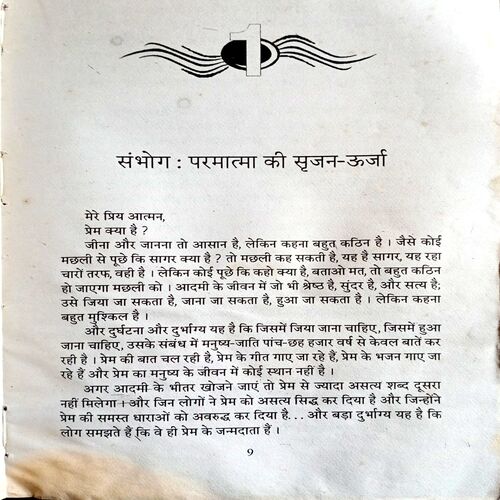 1
संभोग : परमात्मा की सृजन-ऊर्जा
मेरे प्रिय आत्मन,
प्रेम क्या है ?
जीना और जानना तो आसान है, लेकिन कहना बहुत कठिन है । जैसे कोई
मछली से पूछे कि सागर क्या है ? तो मछली कह सकती है, यह है सागर, यह रहा
चारों तरफ, वही है । लेकिन कोई पूछे कि कहो क्या है, बताओ मत, तो बहुत कठिन
हो जाएगा मछली को । आदमी के जीवन में जो भी श्रेष्ठ है, सुंदर है, और सत्य है;
उसे जिया जा सकता है, जाना जा सकता है, हुआ जा सकता है । लेकिन कहना
बहुत मुश्किल है ।
और दुर्घटना और दुर्भाग्य यह है कि जिसमें जिया जाना चाहिए, जिसमें हुआ
जाना चाहिए, उसके संबंध में मनुष्य-जाति पांच-छह हजार वर्ष से केवल बातें कर
रही है । प्रेम की बात चल रही है, प्रेम के गीत गाए जा रहे हैं, प्रेम के भजन गाए जा
रहे हैं और प्रेम का मनुष्य के जीवन में कोई स्थान नहीं है ।
अगर आदमी के भीतर खोजने जाएं तो प्रेम से ज्यादा असत्य शब्द दूसरा
नहीं मिलेगा । और जिन लोगों ने प्रेम को असत्य सिद्ध कर दिया है और जिन्होंने
प्रेम की समस्त धाराओं को अवरुद्ध कर दिया है... और बड़ा दुर्भाग्य यह है कि
लोग समझते हैं कि वे ही प्रेम के जन्मदाता हैं ।
9